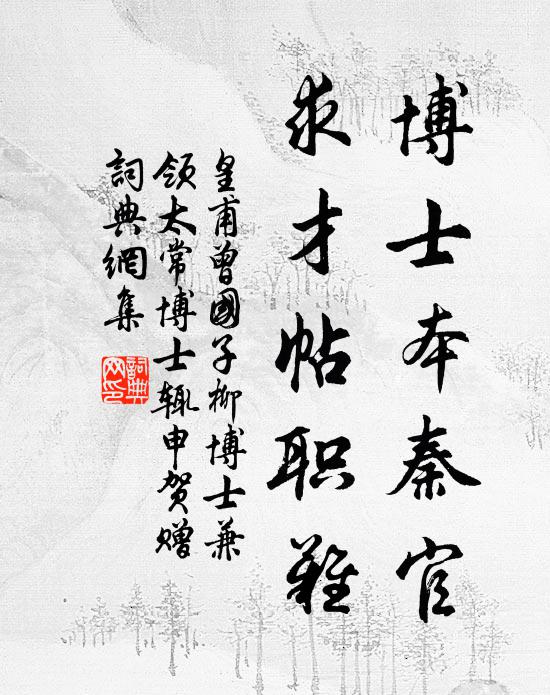 博士本秦官
求才帖职難
皇甫曾國子柳博士兼
领太常博士辄申贺赠
詞典網集
詞典网印